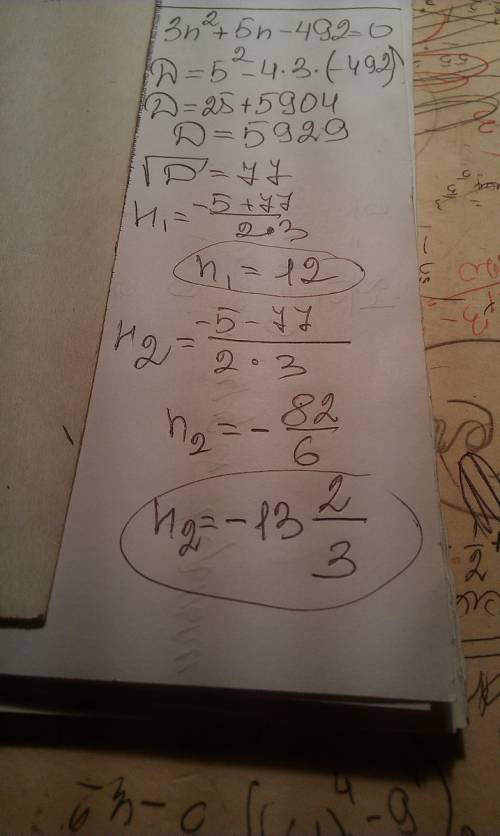 3n²+5n-492=0
D=5²-4·3·(-492)
D=25+5904
D=5929
√D=77
n₁=(-5+77)/(2·3)
n₁=12
n₂=(-5-77)/(2·3)
n₂=-82/6
n₂=-13 2/3